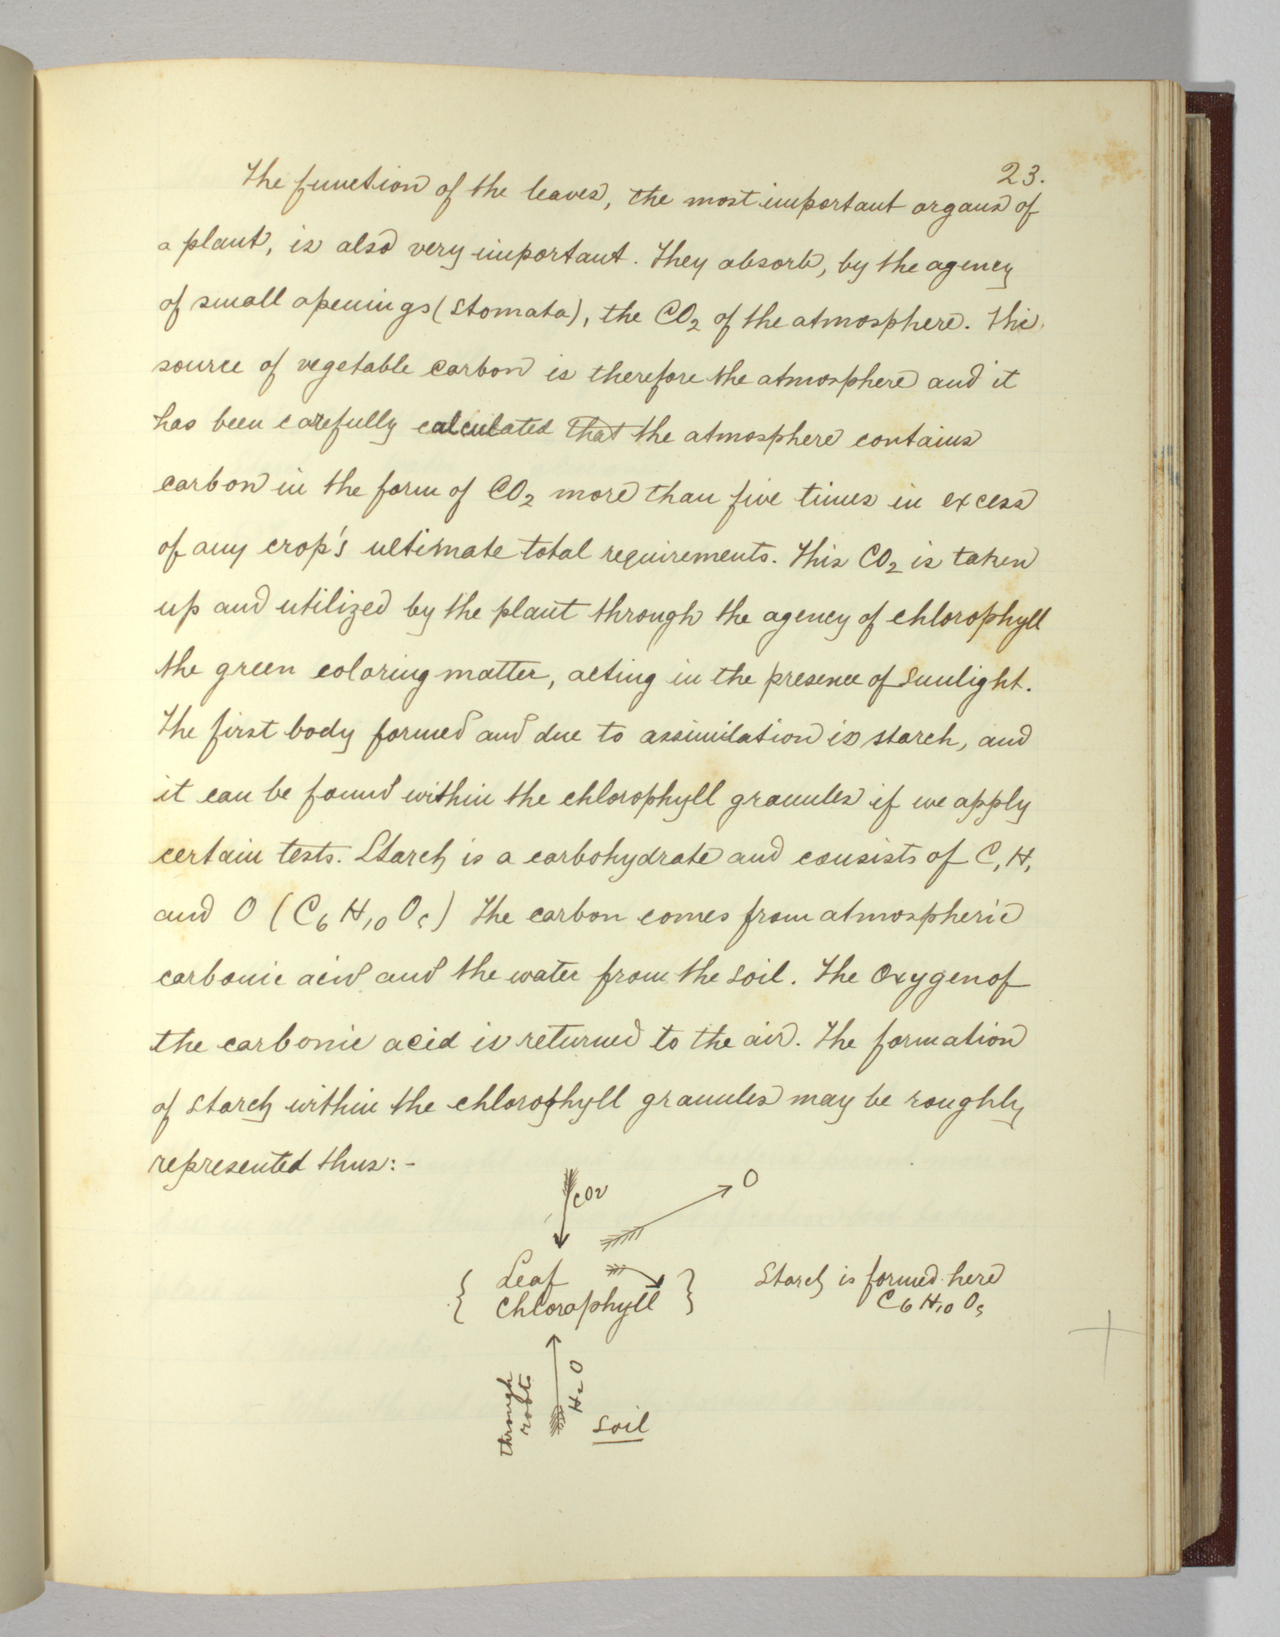 23.
The function of the leaves, the most important organs of
a plant, is also very important. They absorb, by the agency
of small openings (stomata), the CO2 of the atmosphere. The
source of vegetable carbon is therefore the atmosphere and it
has been carefully calculated that the atmosphere contains
carbon in the form of CO2 more than five times in excess
of any crop's ultimate total requirements. This CO2 is taken
up and utilized by the plant through the agency of chlorophyll
the green coloring matter, acting in the presence of sunlight.
The first body formed and due to assimilation is starch, and
it can be found within the chlorophyll granules if we apply
certain tests. Starch is a carbohydrate and consists of C, H,
and O (C6 H10 O5) The carbon comes from atmospheric
carbonic acid and the water from the soil. The Oxygen of
the carbonic acid is returned to the air. The formation
of starch within the chlorophyll granules may be roughly
represented thus:-
CO2
O
{ Leaf
Chlorophyll }
Starch is formed here
C6 H10 O5
through
roots
H2O
Soil